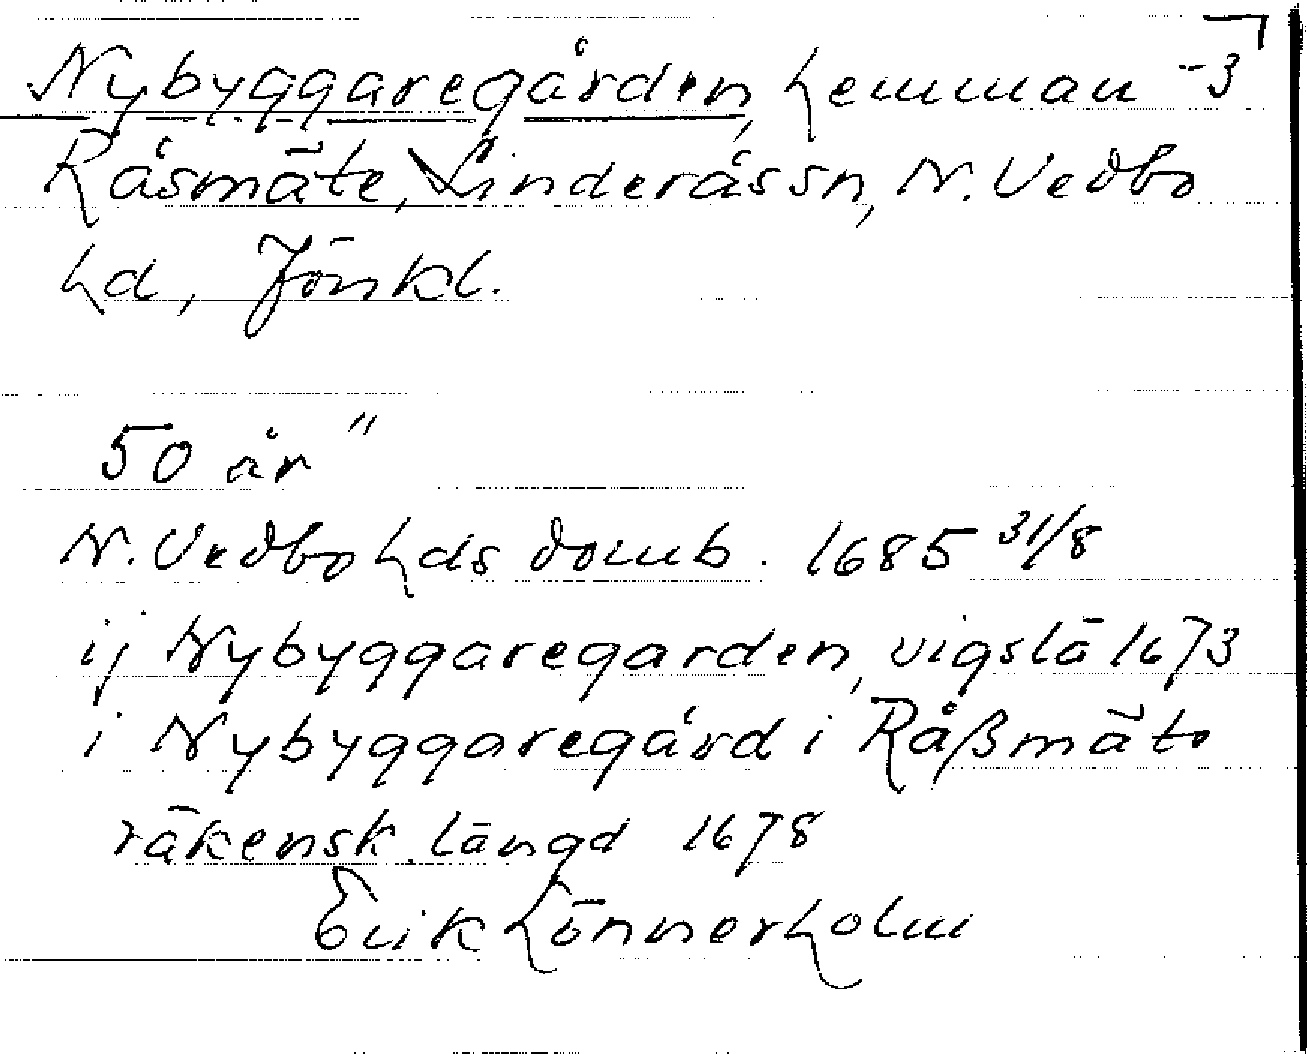 Nybyggaregården, hemman -3
Råsmäte, Linderås sn, N. Vedbo
hd, Jönk l.
50 år "
N. Vedbo hds domb. 1685 31/8
ij Nybyggaregarden, vigslä 1673
i Nybyggaregård i Råßmäte
räkensk. längd 1678
Erik Lönnerholm